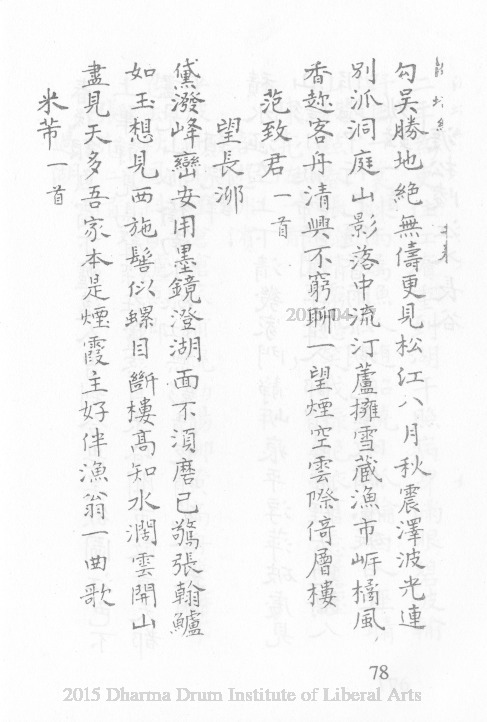 勾吳勝地絶無儔更見松江八月秋震澤波光連
別派洞庭山影落中流汀蘆擁雪藏漁市岸橘風
香趂客舟清興不窮聊一望煙空雲際倚層樓
范致君一首
望長𣲖
黛潑峰巒安用墨鏡澄湖面不須磨已驚張翰鱸
如玉想見西施髻似螺目斷樓高知水濶雲開山
盡見天多吾家本是煙霞主好伴漁翁一曲歌
米芾一首
78
2015 Dharma Drum Institute of Liberal Arts